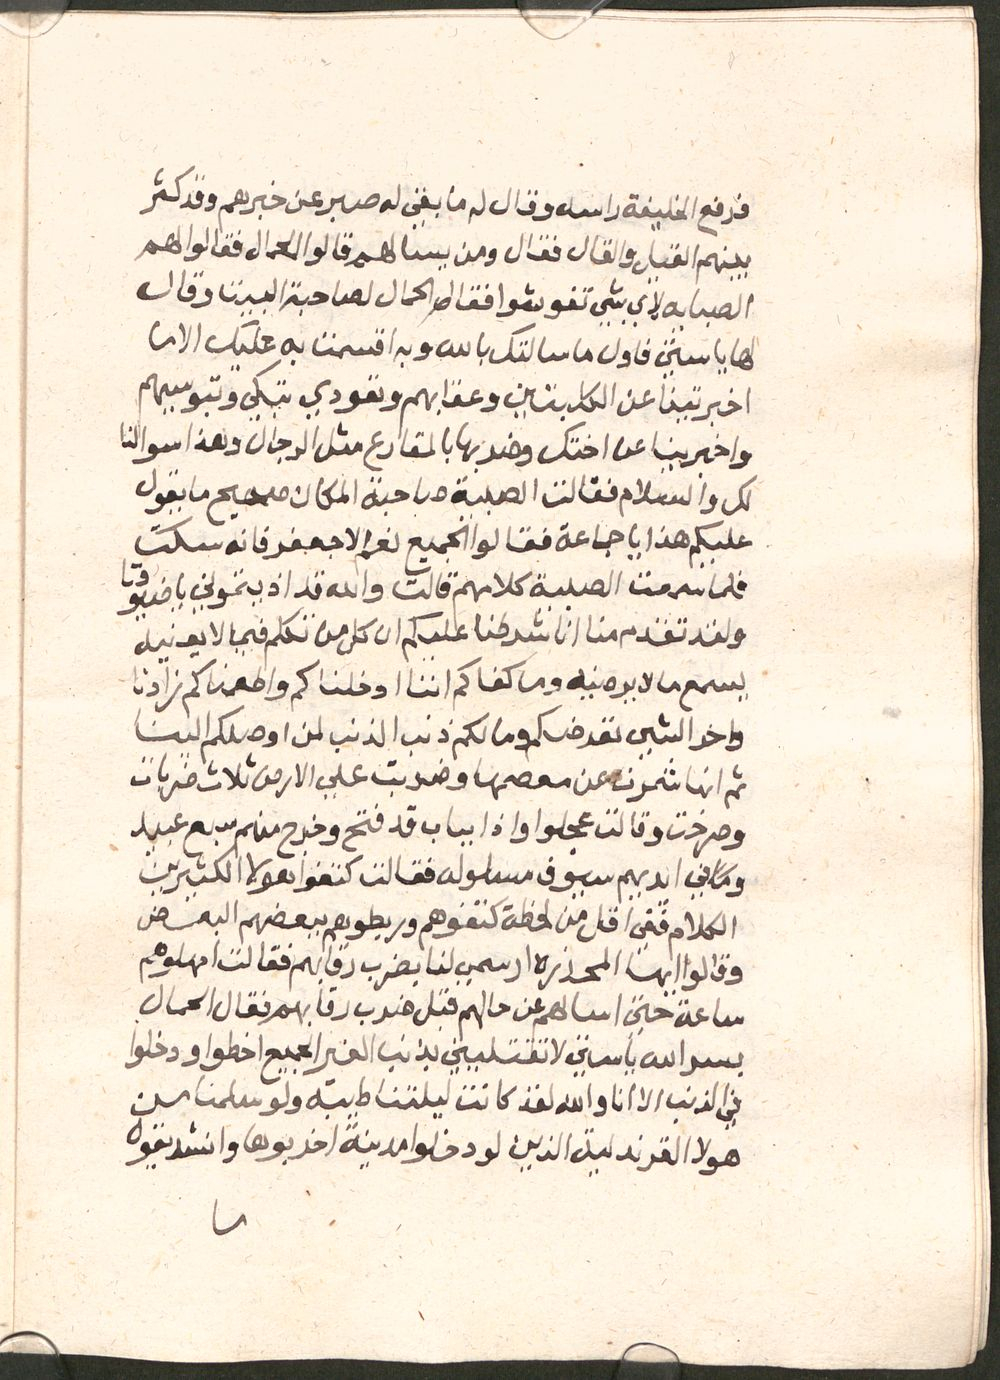 فرفع الخليفة راسه وقال له ما بقي له صبر عن خبرهم وقد كثر
بينهم القيل والقال فقال ومن يسالهم قالوا الحمال فقالوا لهم
الصبايا لاي شي تفوشوا فقام الحمال لصاحبة البيت وقال
لها يا ستي فاول ما سالتك بالله وبه اقسمت به عليك الا ما
اخبرتينا عن الكلبتين وعقابهم وتعودي تبكي وتبوسيهم
واخبرينا عن اختك وضربها بالمقارع مثل الرجال وهذا سوالنا
لكي والسلام فقالت الصبية صاحبة المكان صحيح ما يقول
عليكم هذا يا جماعة فقالوا الجميع نعم الا جعفر فانه سكت
فلما سمعت الصبية كلامهم قالت والله قد اذيتمونا يا ضيوفنا
ولقد تقدم منا اننا شرطنا عليكم ان كل من تكلم فيما لا يعنيه
يسمع ما لا يرضيه وما كفاكم اننا ادخلناكم واطعمناكم زادنا
واخر الشي تعرضكم وما لكم ذنب الذنب لمن اوصلكم الينا
ثم انها شمرت عن معصمها وضربت علي الارض ثلاث ضربات
وصرخت وقالت عجلوا واذا بباب قد فتح وخرج منهم سبع عبيد
وما في ايديهم سيوف مسلوله فقالت كتفوا هولا الكثيرين
الكلام ففي اقل من لحظة كتفوهم وربطوهم ببعضهم البعض
وقالوا ايها المخدرة ارسمي لنا بضرب رقابهم فقالت امهلوهم
ساعة حتي اسالهم عن حالهم قبل ضرب رقابهم فقال الحمال
بستر الله يا ستي لا تقتليني بذنب الغير الجميع اخطوا ودخلوا
في الذنب الا انا والله لقد كانت ليلتنا طيبة ولو سلمنا من
هولا القرندلية الذين لو دخلوا مدينة اخربوها وانشد يقول
ما